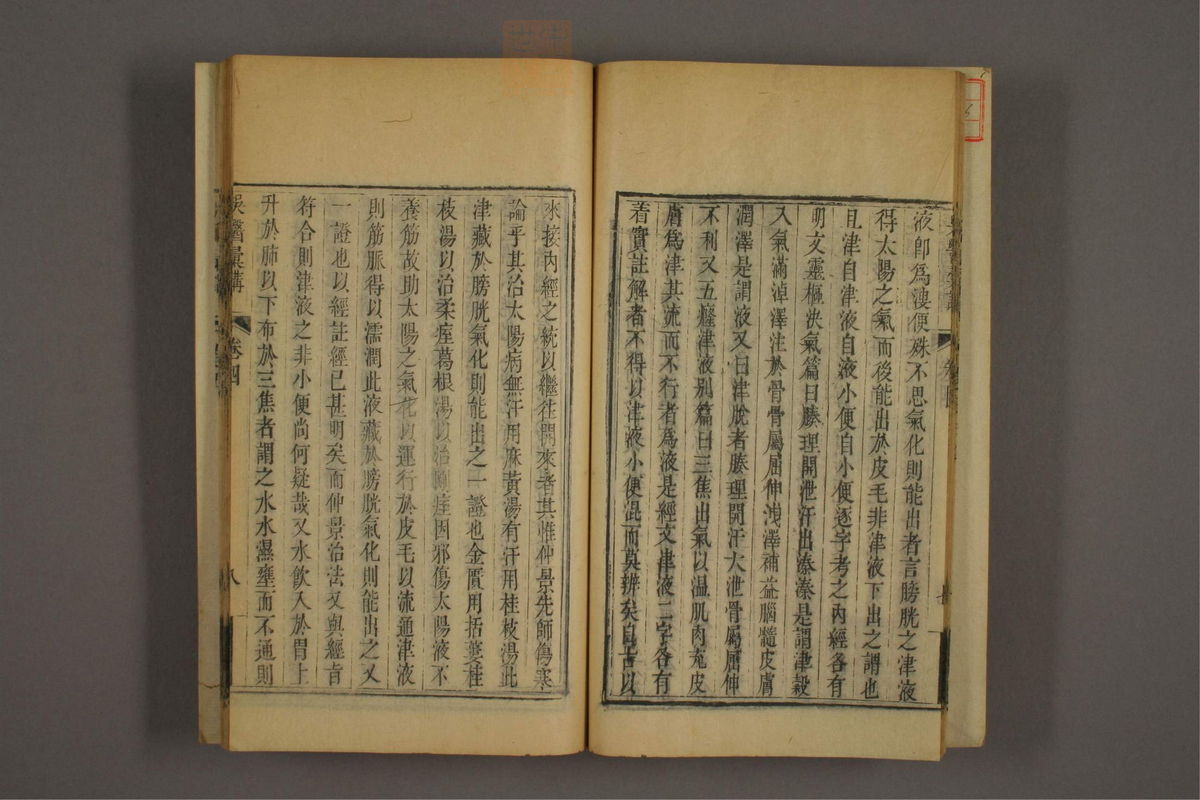 液卽爲溲便殊不思氣化則能出者言膀胱之津液
得太陽之氣而後能出於皮毛非津液下出之謂也
且津自津液自液小便自小便逐字考之內經各有
明文靈樞決氣篇曰腠理開泄汗出溱溱是謂津穀
入氣滿淖澤注於骨骨屬屈伸洩澤補益腦髓皮膚
潤澤是謂液又曰津脫者腠理開汗大泄骨屬屈伸
不利又五癃津液別篇曰三焦出氣以温肌肉充皮
膚爲津其流而不行者爲液是經文津液二字各有
着實註解者不得以津液小便混而莫辨矣自古以
來接內經之統以繼往開來者其惟仲景先師傷寒
論乎其治太陽病無汗用麻黃湯有汗用桂枝湯此
津藏於膀胱氣化則能出之一證也金匱用括蔞桂
枝湯以治柔痓葛根湯以治剛痓因邪傷太陽液不
養筋故助太陽之氣化以運行於皮毛以流通津液
則筋脈得以濡潤此液藏於膀胱氣化則能出之又
一證也以經註經已甚明矣而仲景治法又與經旨
符合則津液之非小便尚何疑哉又水飲入於胃上
升於肺以下布於三焦者謂之水水濕壅而不通則
吳醫彙講
卷四
八